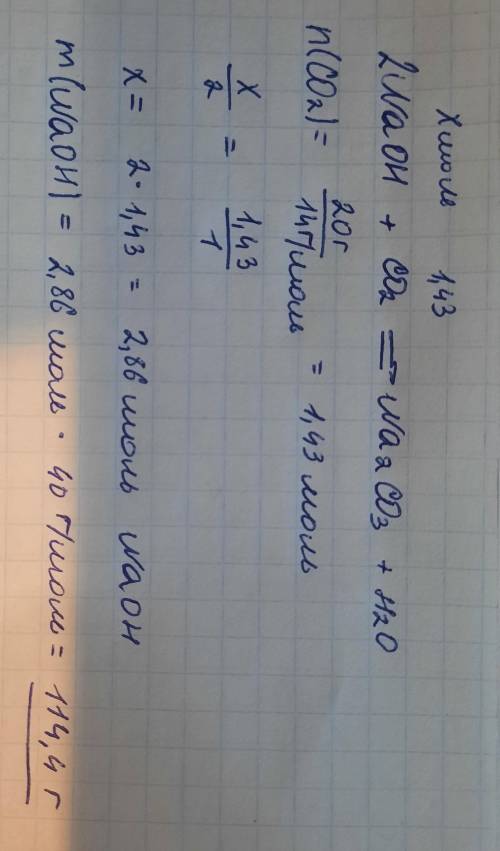 х моль 1,43
2NaOH + CO₂ ⇒ Na₂CO₃ + H₂O
n(CO₂) = 20г / 14г/моль = 1,43 моль
x/2 = 1,43/1
x = 2 · 1,43 = 2,86 моль NaOH
m(NaOH) = 2,86 моль · 40 г/моль = 114,4 г